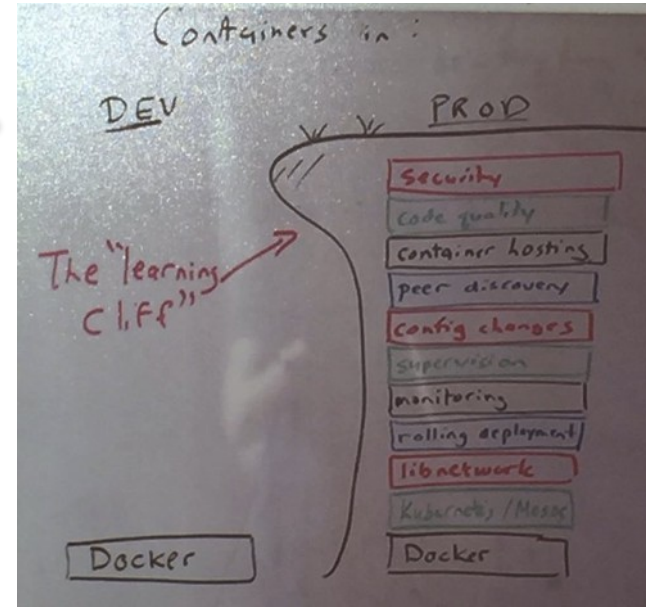 Containers in :
DEV
PROD
The "learning
Cliff"
Security
code quality
container hosting
peer discovery
config changes
supervision
monitoring
rolling deployment
libnetwork
Kubernetes / Mesos
Docker
Docker